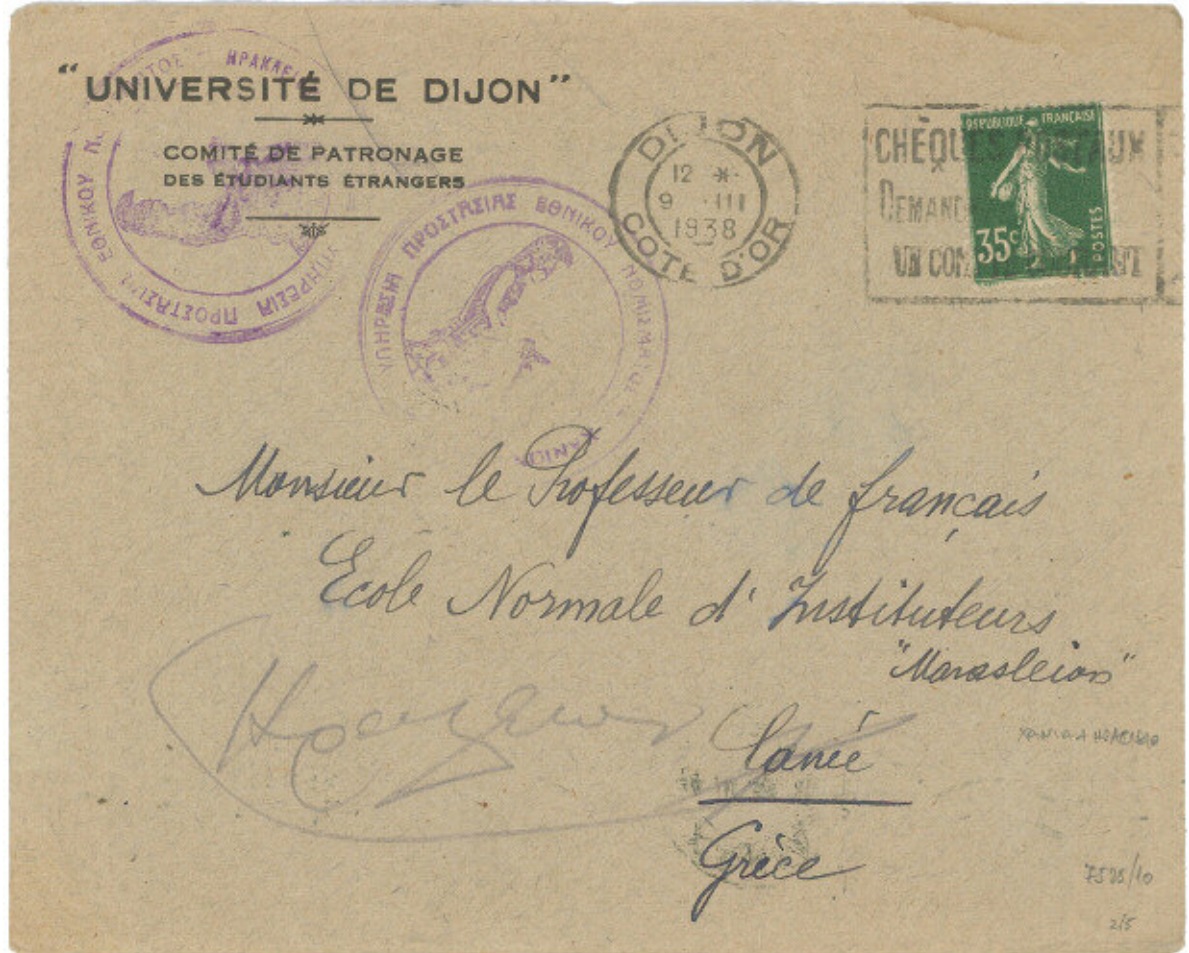 "UNIVERSITÉ DE DIJON"
COMITÉ DE PATRONAGE
DES ÉTUDIANTS ÉTRANGERS
ΥΠΗΡΕΣΙΑ ΠΡΟΣΤΑΣΙΑΣ ΕΘΝΙΚΟΥ
ΥΠΗΡΕΣΙΑ ΠΡΟΣΤΑΣΙΑΣ ΕΘΝΙΚΟΥ ΝΟΜΙΣΜΑΤΟΣ
DIJON
12 *
9 III
1938
COTE D'OR
CHÈQUES POSTAUX
UN
REPUBLIQUE FRANÇAISE
35c
POSTES
Monsieur le Professeur de français
Ecole Normale d'Instituteurs
"Marasleion"
Canée
Grèce
7525/10
2/5